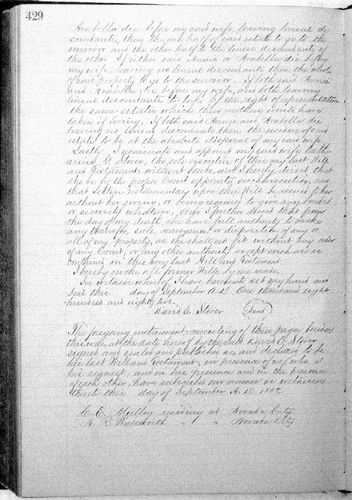 429
Arabella die before my said wife, leaving lineal de-
scendants, then the one half of said estate to go to the
survivor and the other half to the lineal descendants of
the other. If either said Annie or Arabella die, before
my wife, leaving no lineal descendants then the whole
of said property to go to the survivor. If both said Annie
and Arabella die before my wife, and both leaving
lineal descendants to take by the right of representation
the same estates which their mothers would have
taken if living. If both said Annie and Arabella die
leaving no lineal descendants then the residue of said
estate to be at the absolute disposal of my said wife.
Lastly I nominate and appoint my said wife Cath-
arine G. Stover, the sole executrix of this my last Will
and Testament without bonds, and hereby direct that
she be by the proper Court appointed such executrix, and
that Letters Testamentary upon this Will be issued to her
without her giving, or being required to give any bonds
or security whatever, and I further direct that from
the day of my death, she have full authority to make
any transfer, sale conveyance or disposition of any or
all of my property, as she shall see fit without any order
of any Court, or any other authority except such as is
contained in this my last Will and Testament.
I hereby revoke all former Wills by me made.
In witness whereof I have hereunto set my hand and
seal this day of September A.D. One thousand eight
hundred and eighty two.
David C. Stover (Seal)
The foregoing instrument consisting of three pages besides
this was, at the date hereof by the said David C. Stover
signed and sealed and published as, and declared to be
his last Will and Testament, in presence of us, who at
his request, and in his presence and in the presence
of each other, have subscribed our names as witnesses
thereto this day of September A.D. 1882
C. E. Mulloy residing at Nevada City
A. R. Wadsworth " " Nevada City